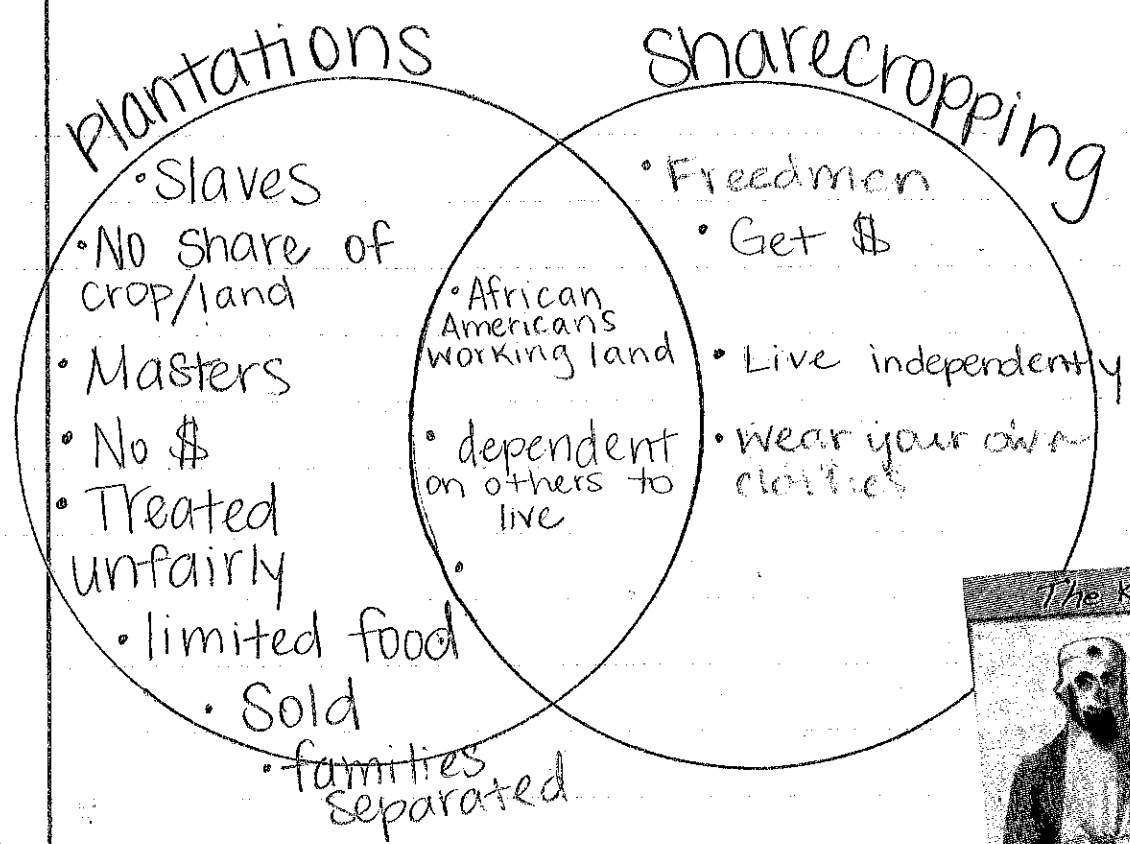 Plantations
• Slaves
• No share of
crop/land
• Masters
• No $
• Treated
unfairly
• limited food
• Sold
• families
separated
• African
Americans
working land
• dependent
on others to
live
•
Sharecropping
• Freedmen
• Get $
• Live independently
• Wear your own
clothes
The K